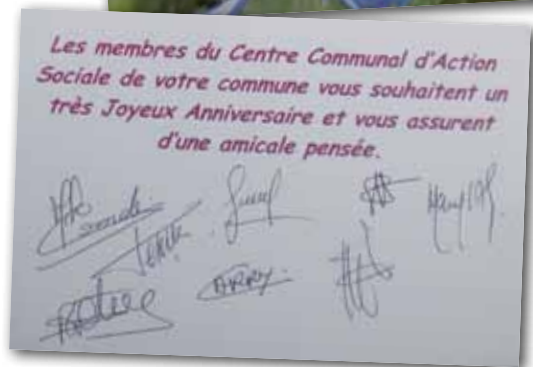 Les membres du Centre Communal d'Action
Sociale de votre commune vous souhaitent un
très Joyeux Anniversaire et vous assurent
d'une amicale pensée.
ARRY